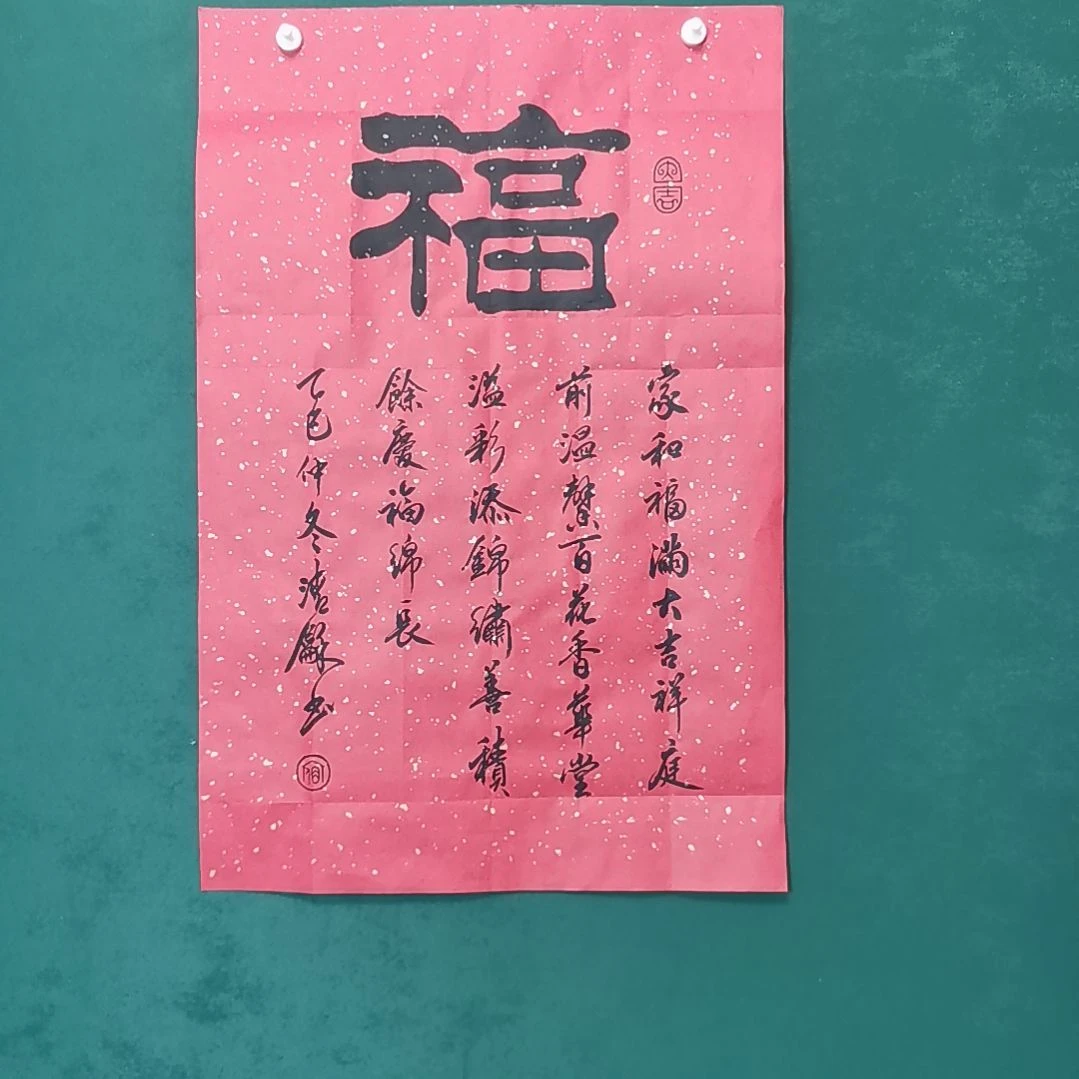 福
大吉
家和福滿大吉祥庭
前溫馨百花香華堂
溢彩添錦繡善積
餘慶福綿長
乙巳仲冬清龢书